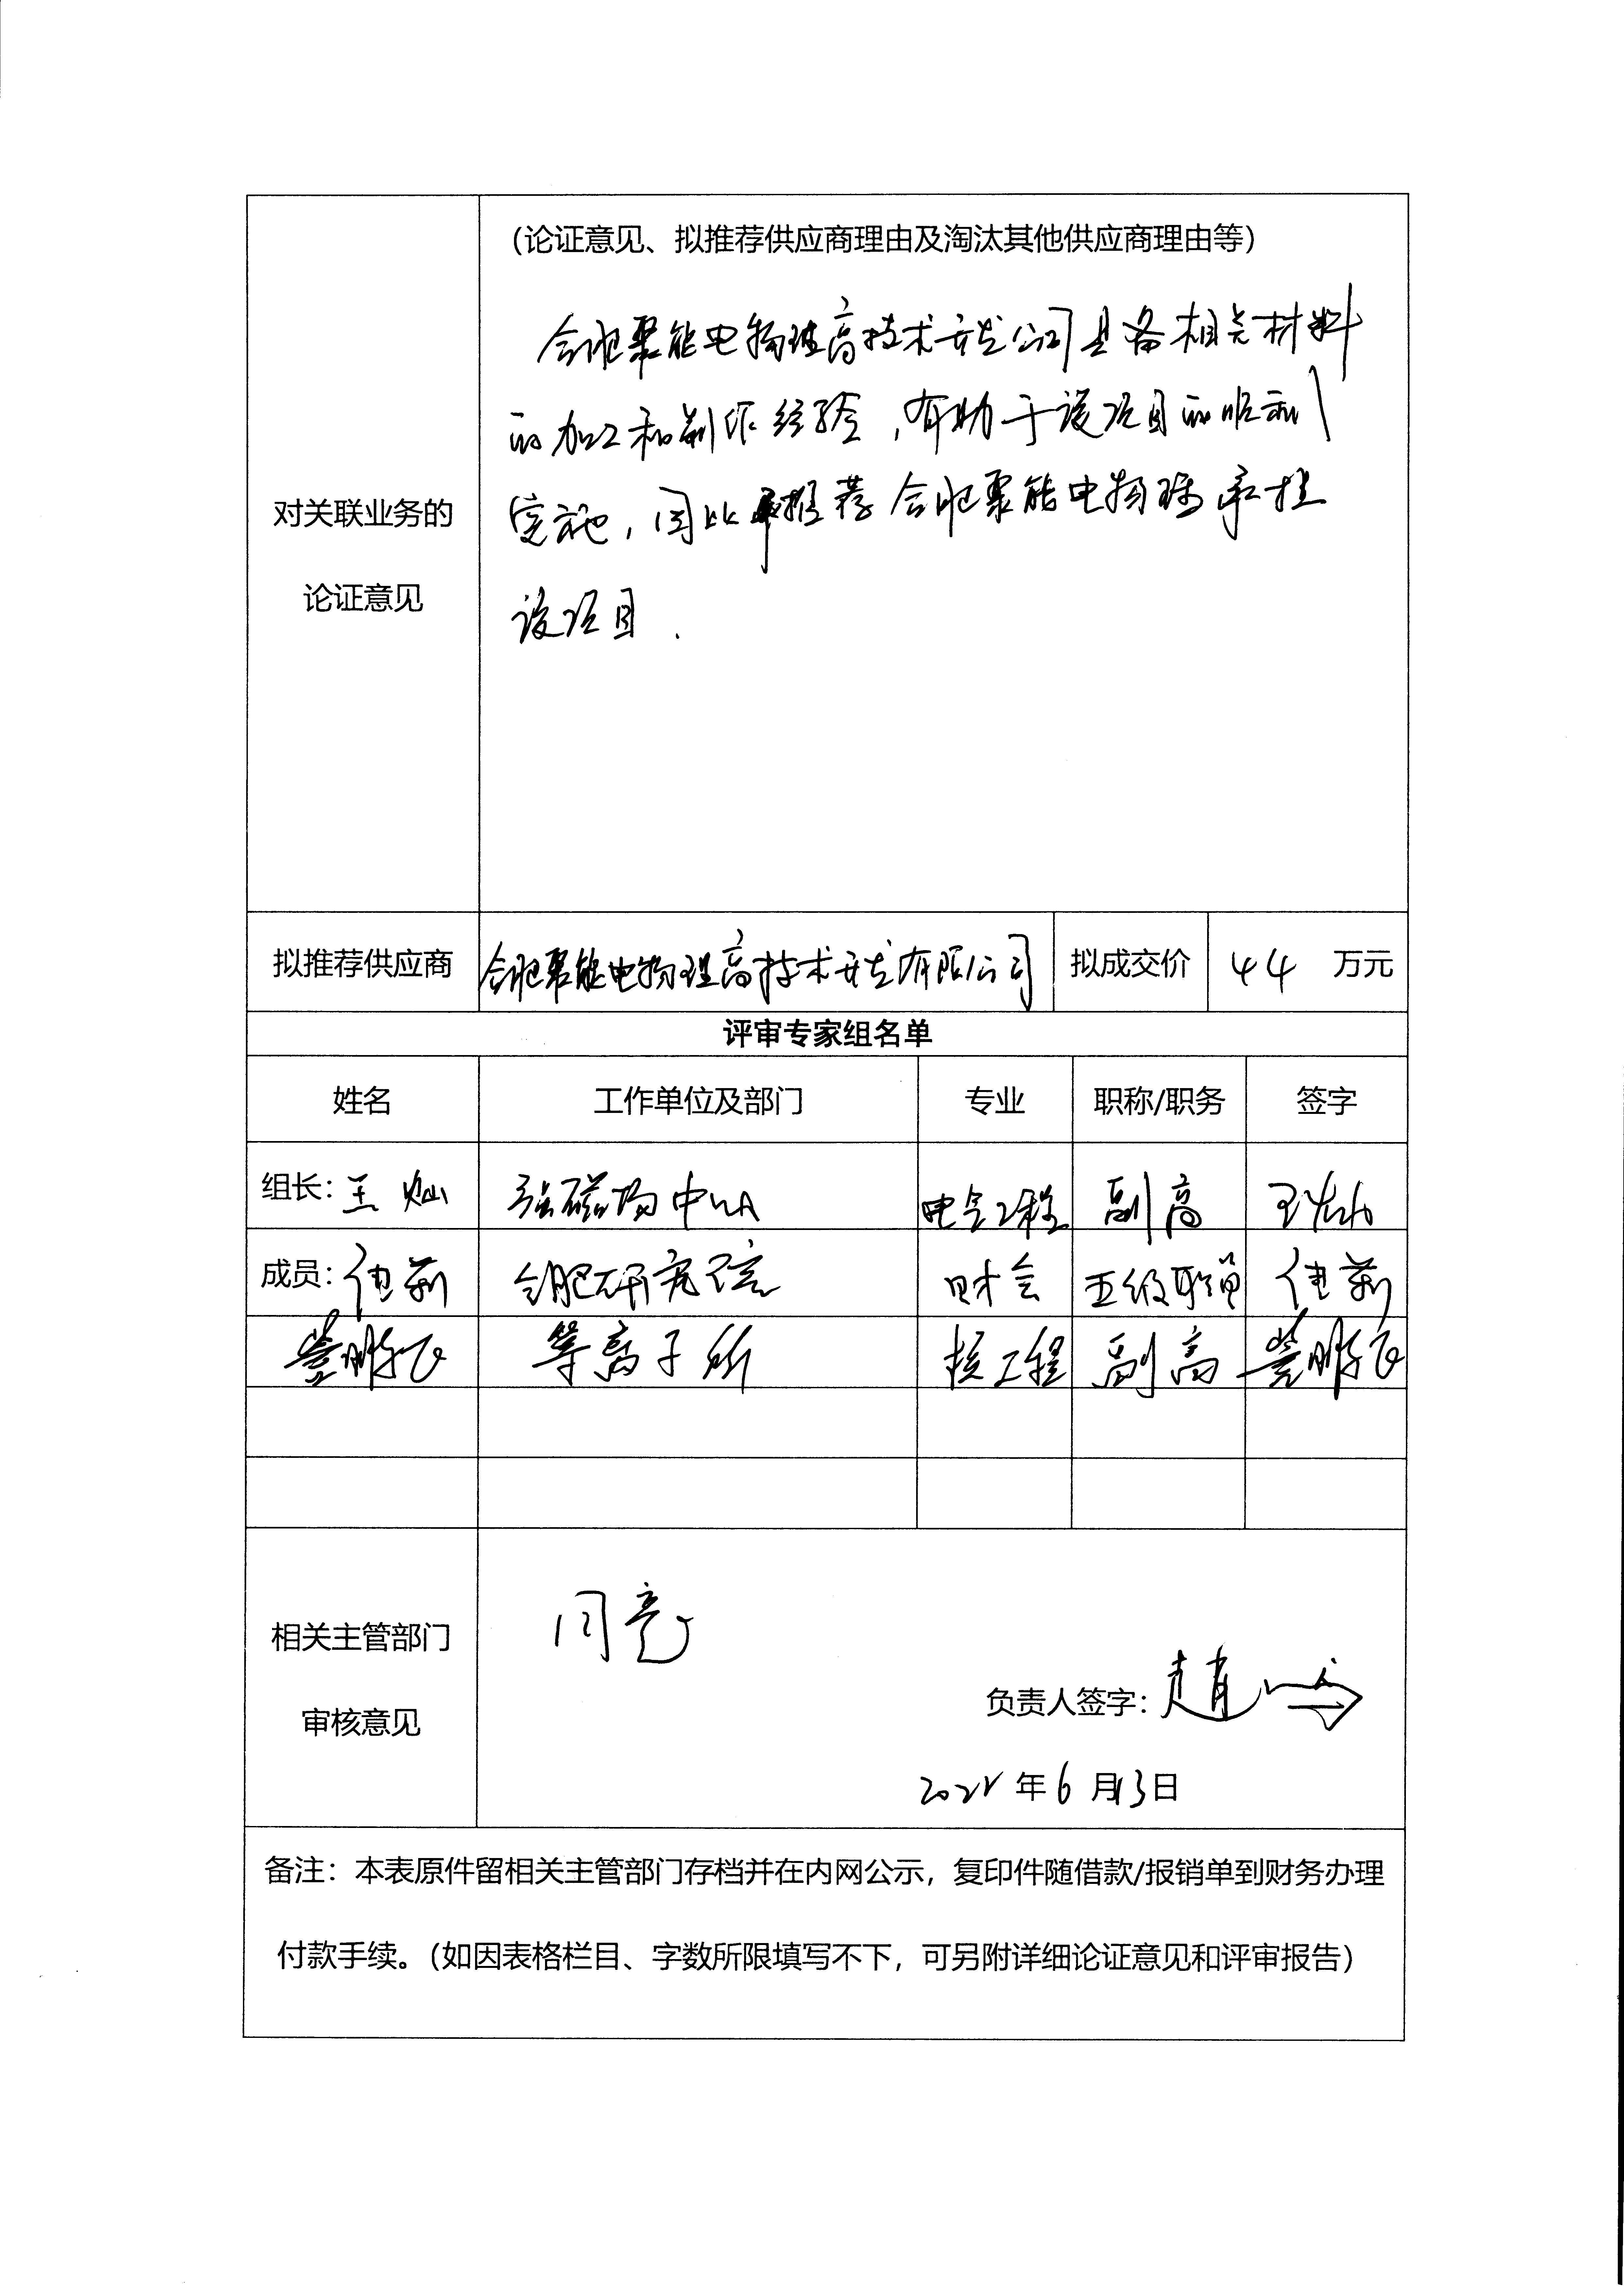 （论证意见、拟推荐供应商理由及淘汰其他供应商理由等）
合肥聚能电物理高技术开发公司具备相关材料
的加工和制作经验，有助于该项目的顺利
实施，因此推荐合肥聚能电物理承担
该项目．
对关联业务的
论证意见
拟推荐供应商 合肥聚能电物理高技术开发有限公司 拟成交价 44 万元
评审专家组名单
姓名 工作单位及部门 专业 职称/职务 签字
组长：王灿 强磁场中心 电气工程 副高 王灿
成员：莉 合肥研究院 财会 五级职员 莉
等离子所 核工程 副高
相关主管部门
审核意见
同意
负责人签字：赵
2022年6月13日
备注：本表原件留相关主管部门存档并在内网公示，复印件随借款/报销单到财务办理
付款手续。（如因表格栏目、字数所限填写不下，可另附详细论证意见和评审报告）